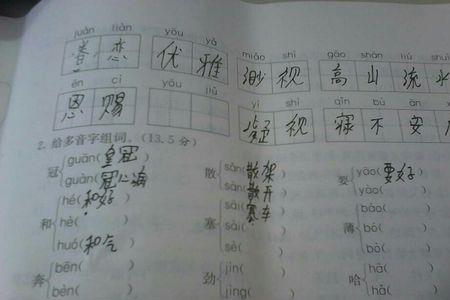 juàn liàn yōu yǎ miǎo shì gāo shān liú shuǐ
眷恋 优雅 渺视 高山流水
ēn cì yōu jiǔ yí shì qǐn bù ān
恩赐 疑视 寝不安
2. 给多音字组词。(13.5 分)
冠 guān(皇冠) 散 sǎn(散架) 要 yāo(要好)
guàn(冠心病) sàn(散开) yào(
和 hé(和好) 塞 sāi(塞车) 薄 báo(
hè( ) sài( ) bó(
huó(和气) sè( ) bò(
奔 bēn( ) 劲 jìn( ) 哈 hā(
bèn( ) jìng( ) hǎ(